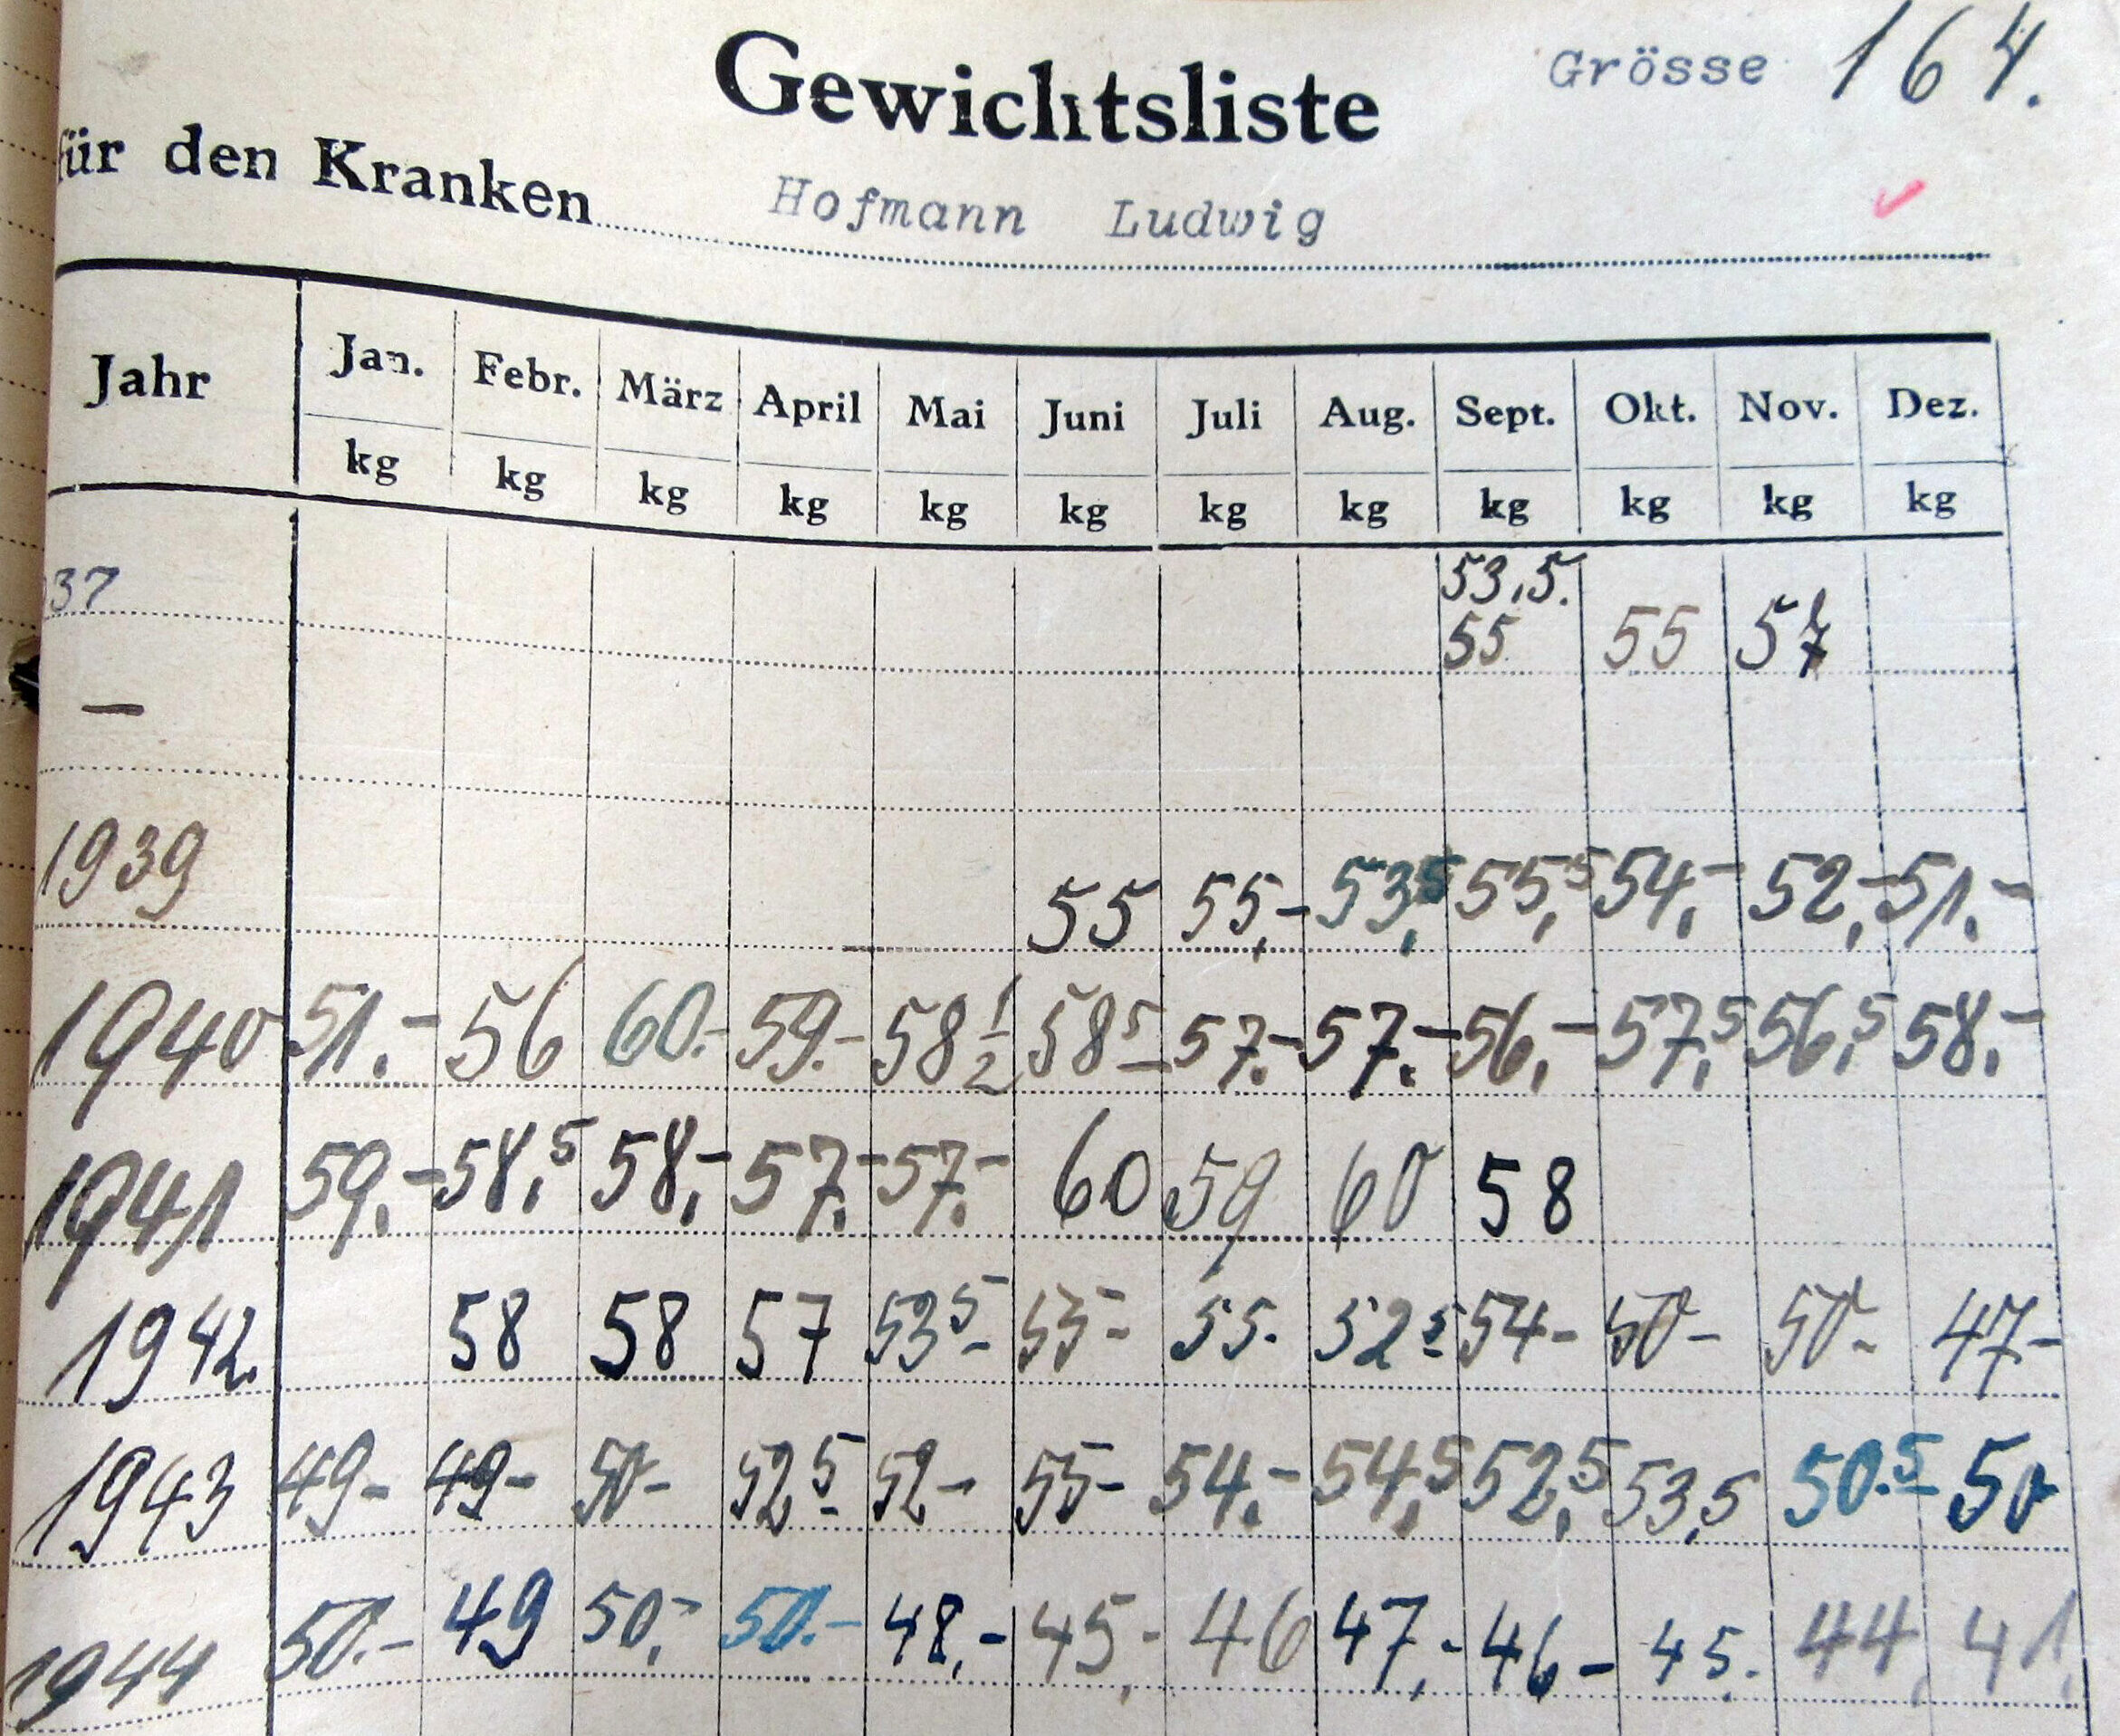 Gewichtsliste
Grösse 164.
für den Kranken Hofmann Ludwig
Jahr Jan. Febr. März April Mai Juni Juli Aug. Sept. Okt. Nov. Dez.
kg kg kg kg kg kg kg kg kg kg kg kg
53,5.
37 55 55
—
1939 55 55,- 53,5 55,5 54,- 52,- 51.-
1940 51.- 56 60.- 59.- 58 1/2 58 5 57.- 57.- 56,- 57,5 56,5 58.-
1941 59.- 58,5 58,- 57.- 57.- 60 59 60 58
1942. 58 58 57 53 5 55- 55. 52 5 54- 50- 50- 47-
1943 49- 49- 50- 52 5 52- 55- 54.- 54,5 52,5 53,5 50.5 50
1944 50.- 49 50.- 50.- 48,- 45,- 46 47,- 46- 45. 44, 41,